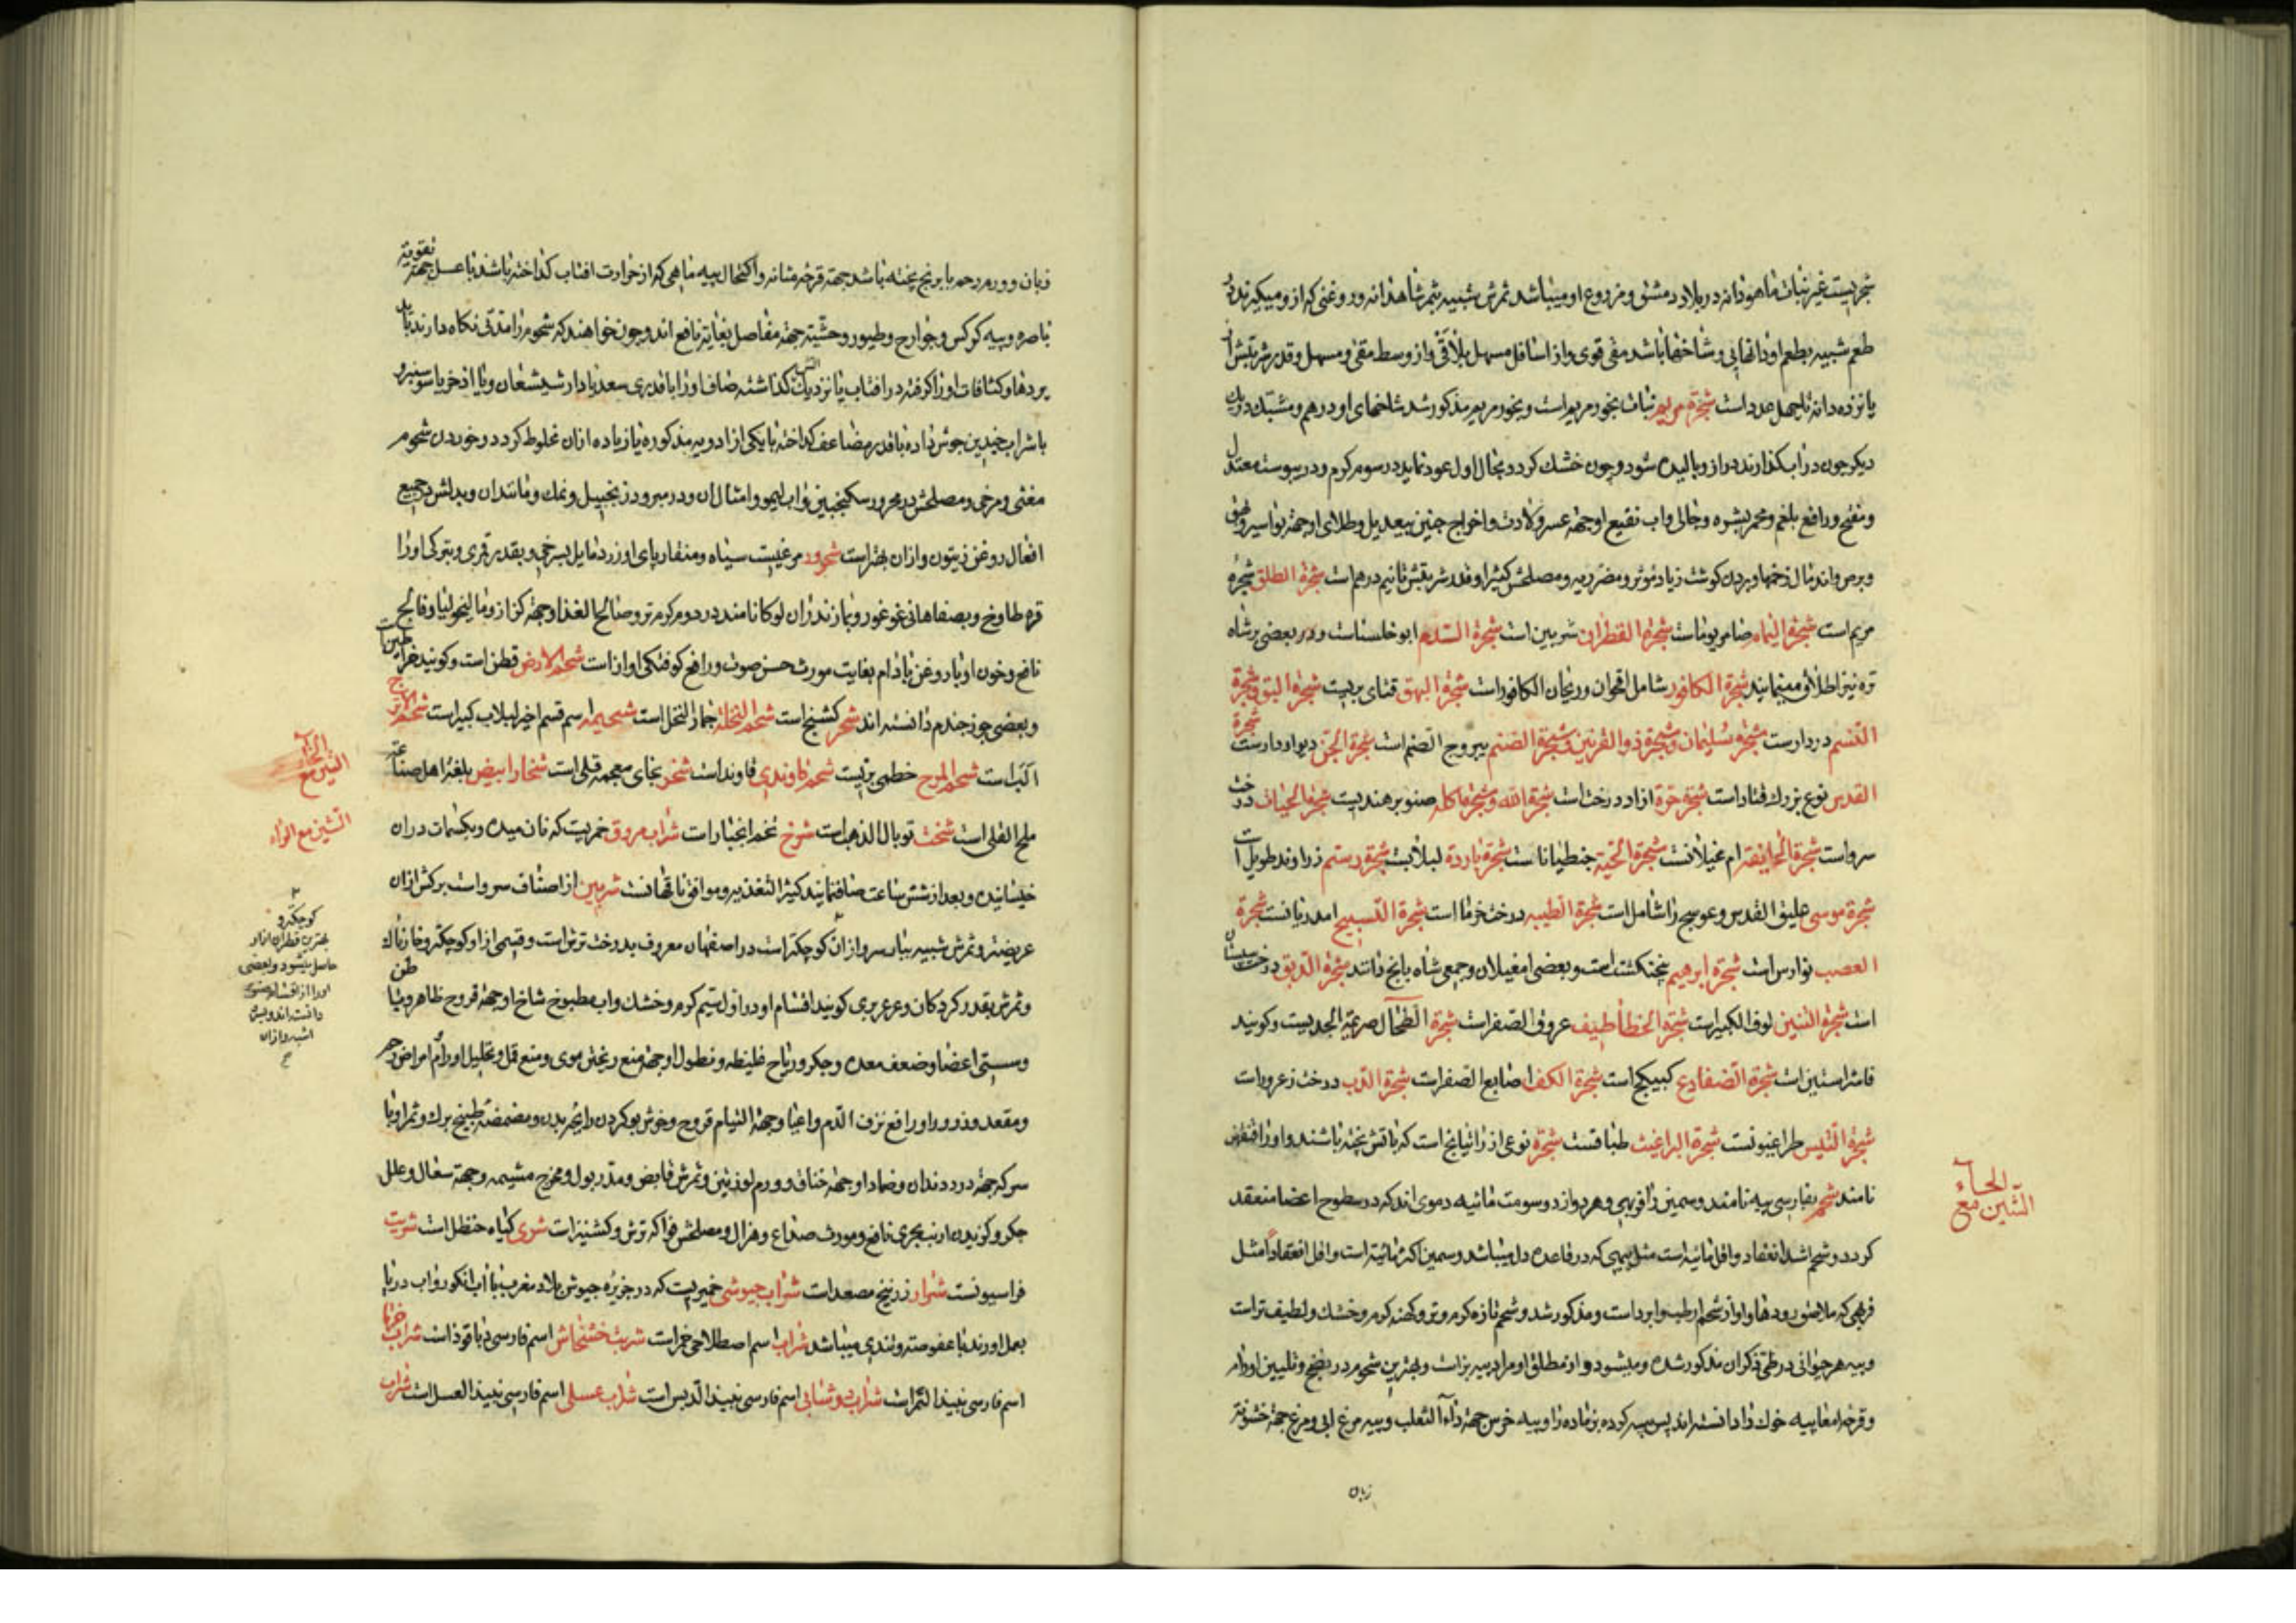 شجریست غیر نبات ماهودانه در بلاد دمشق و مزروع او میباشد ثمرش شبیه بثمر شاهدانه و روغنی که ازو میگیرند در
طعم شبیه بطعم او و انتهای شاخها باشد مقئ قوی و از اسافل مسهل بلا قی و از وسط مقئ و مسهل و قدر شربتش از
پانزده دانه تا چهل عدد است شجرة مریم نبات بخور مریم است و بخور مریم مذکور شد شاخهای او درهم و مشبک
دیگر چون در آب گذارند دراز و بالیده شود و چون خشک گردد بحال اول عود نماید در سوم گرم و در یبوست معتدل
و مفتح و رافع بلغم و محمر بشره و جالی و آب نقیع او جهة عسر ولادت و اخراج جنین بیعدیل و طلای او جهة بواسیر و بهق
و برص و اندمال زخمها و بردن گوشت زیاد مؤثر و مضر ریه و مصلحش کثیرا و قدر شربتش تا نیم درهم است شجرة الطلق شجرة
مریم است شجرة الیمام ضامر یوما است شجرة القطران شربین است شجرة الدم ابوخلسا است و در بعضی بر شاه
تره نیز اطلاق مینمایند شجرة الکافور شامل اقحوان و ریحان الکافور است شجرة البهق قنابریست شجرة البق و شجرة
دردار است شجرة سلیمان و شجرة ذوالقرنین و شجرة الصنم یبروج الصنم است شجرة الجن دیودار است شجرة
القدس نوع بزرک قتاد است شجرة حرة ازاد درخت است شجرة الله و صنوبر هندیست شجرة الحیات درخت
سرو است ام غیلانست شجرة الحیة جنطیانا است شجرة باردة لبلابست شجرة رستم زراوند طویل است
شجرة موسی علیق القدس و عوسج را شامل است شجرة الطیبه درخت خرما است شجرة التسبیح امدریانست شجرة
العصب نوارس است شجرة ابرهیم پنجنکشت است و بعضی امغیلان و جمعی شاه بابنج دانند شجرة الدبق درخت سپستان
است شجرة التنین لوف الکبیر است شجرة الخطاطیف عروق الصفر است شجرة الطحال صریمة الجدیست و گویند
فاشراستین است شجرة الضفادع کبیکج است شجرة الکف اصابع الصفر است شجرة الدب درخت زعرور است
شجرة التیس طراغیونست شجرة البراغیث طباقست شجرة نوعی از رازیانج است که
نامند شحم بفارسی پیه نامند و سمین را فربهی و هر دو از دسومت مائیه دموی اند که در سطوح اعضا منعقد
گردد و شحم اشد انعقاد و اقل مائیه است مثل پیهی که در قاعده دل میباشد و سمین اکثر مائیته است و اقل انعقاداً مثل
فربهی که ملاصق رودها و او از شحم ارطب و ابرد است و مذکور شد و شحم تازه گرم و تر و کهنه گرم و خشک و لطیف تر است
و پیه هر حیوانی در طی ذکر آن مذکور شده و میشود و از مطلق او مراد پیه بز است و بهترین شحوم در نضج و تلیین اورام
و قرحه امعا پیه خوک را دانسته اند پس پیه گرده بز ماده را و پیه خرس جهة داء الثعلب و پیه مرغ ابی و مرغ جهة خشونة
زبان
الشین مع الحاء
زبان و ورم رحم با برنج پخته باشد جهة قرحه مثانه و اکتحال پیه ماهی که از حرارت افتاب گداخته باشد با عسل جهة تقویة
باصره و پیه کرکس و جوارح و طیور وحشیة جهة مفاصل بغایة نافع اند و چون خواهند که شحوم را مدتی نگاه دارند باید
پردها و کثافات او را گرفته در افتاب یا نزدیک آتش گذاشته صاف او را با قدری سعد یا دارشیشعان و یا اذخر یا سوسنبر و
با شراب چندین جوش داده با قدر مضاعف گداخته با یکی از ادویه مذکوره یا زیاده از آن مخلوط گردد و خوردن شحوم
مغثی و مرخی و مصلحش در محرور سکنجبین و آب لیمو و امثال آن و در مبرود زنجبیل و نمک و مانند آن و بدلش در جمیع
افعال روغن زیتون و از آن بهتر است شحرور مرغیست سیاه و منقار و پای او زرد مایل بسرخی و بقدر قمری و بترکی او را
قره طاوخ و بصفاهانی غوغور و بمازندران لوکا نامند در دوم گرم و تر و صالح الغذا و جهة کزاز و مالیخولیا و فالج
نافع و خون او با روغن بادام بغایت مورث حسن صوت و رافع گرفتگی اواز است شحم الارض قطن است و گویند خراطین است
و بعضی جوز جندم دانسته اند شحر کشنج است شحم النخله جمار النخل است شحیمه اسم قسم اخیر لبلاب کبیر است شحم الاترج
است شحم المرج خطمی بریست شحم قاوندی قاوند است شخر بخای معجمه قلی است شخار ابیض بلغة اهل صناعة
ملح القلی است شخت توبال الذهب است شرخ تخم انجبار است شراب مروق خمریست که نان میده و بکسمات در آن
خیسانیده و بعد از شش ساعت صاف نمایند کثیر التغذیه و موافق ناقهانست شربین از اصناف سرو است برگش از آن
عریضتر و ثمرش شبیه ببار سرو از آن کوچکتر است در اصفهان معروف بدرخت ترش است و قسمی از او کوچکتر و خارناک
و ثمرش بقدر گردکان و عرعر بری گویند اقسام او در اول سیم گرم و خشک و آب مطبوخ شاخ او جهة قروح ظاهر و باطن
و سستی اعضا و ضعف معده و جگر و ریاح غلیظه و نطول او جهة منع ریختن موی و منع قمل و تحلیل اورام و امراض رحم
و مقعد و ذرور او رافع نزف الدم و اعیا و جهة التیام قروح و خوش بو کردن رایحه بدن و مضمضه طبیخ برگ و ثمر او با
سرکه جهة درد دندان و ضماد او جهة خناق و ورم لوزتین و ثمرش قابض و مدر بول و مخرج مشیمه و جهة سعال و علل
جگر و گزیدن ارنب بحری نافع و مورث صداع و هزال و مصلحش فواکه ترش و کشنیز است شری گیاه حنظل است شریت
فراسیونست شرار زرنیخ مصعد است شراب جیوشی خمیریست که در جزیره جیوش بلاد مغرب با آب انگور و آب دریا
بعمل اورند با عفوصت و تندی میباشد شراب اسم اصطلاحی خمر است شربت خشخاش اسم فارسی دیاقوذا است شراب خرما
اسم فارسی نبیذ التمر است شراب دوشابی اسم فارسی نبیذ الدبس است شراب عسلی اسم فارسی نبیذ العسل است شراب
الشین مع الخاء
الشین مع الراء
کوچکتر و
بهترین قطران از او
حاصل میشود و بعضی
او را از اقسام صنوبر
دانسته اند